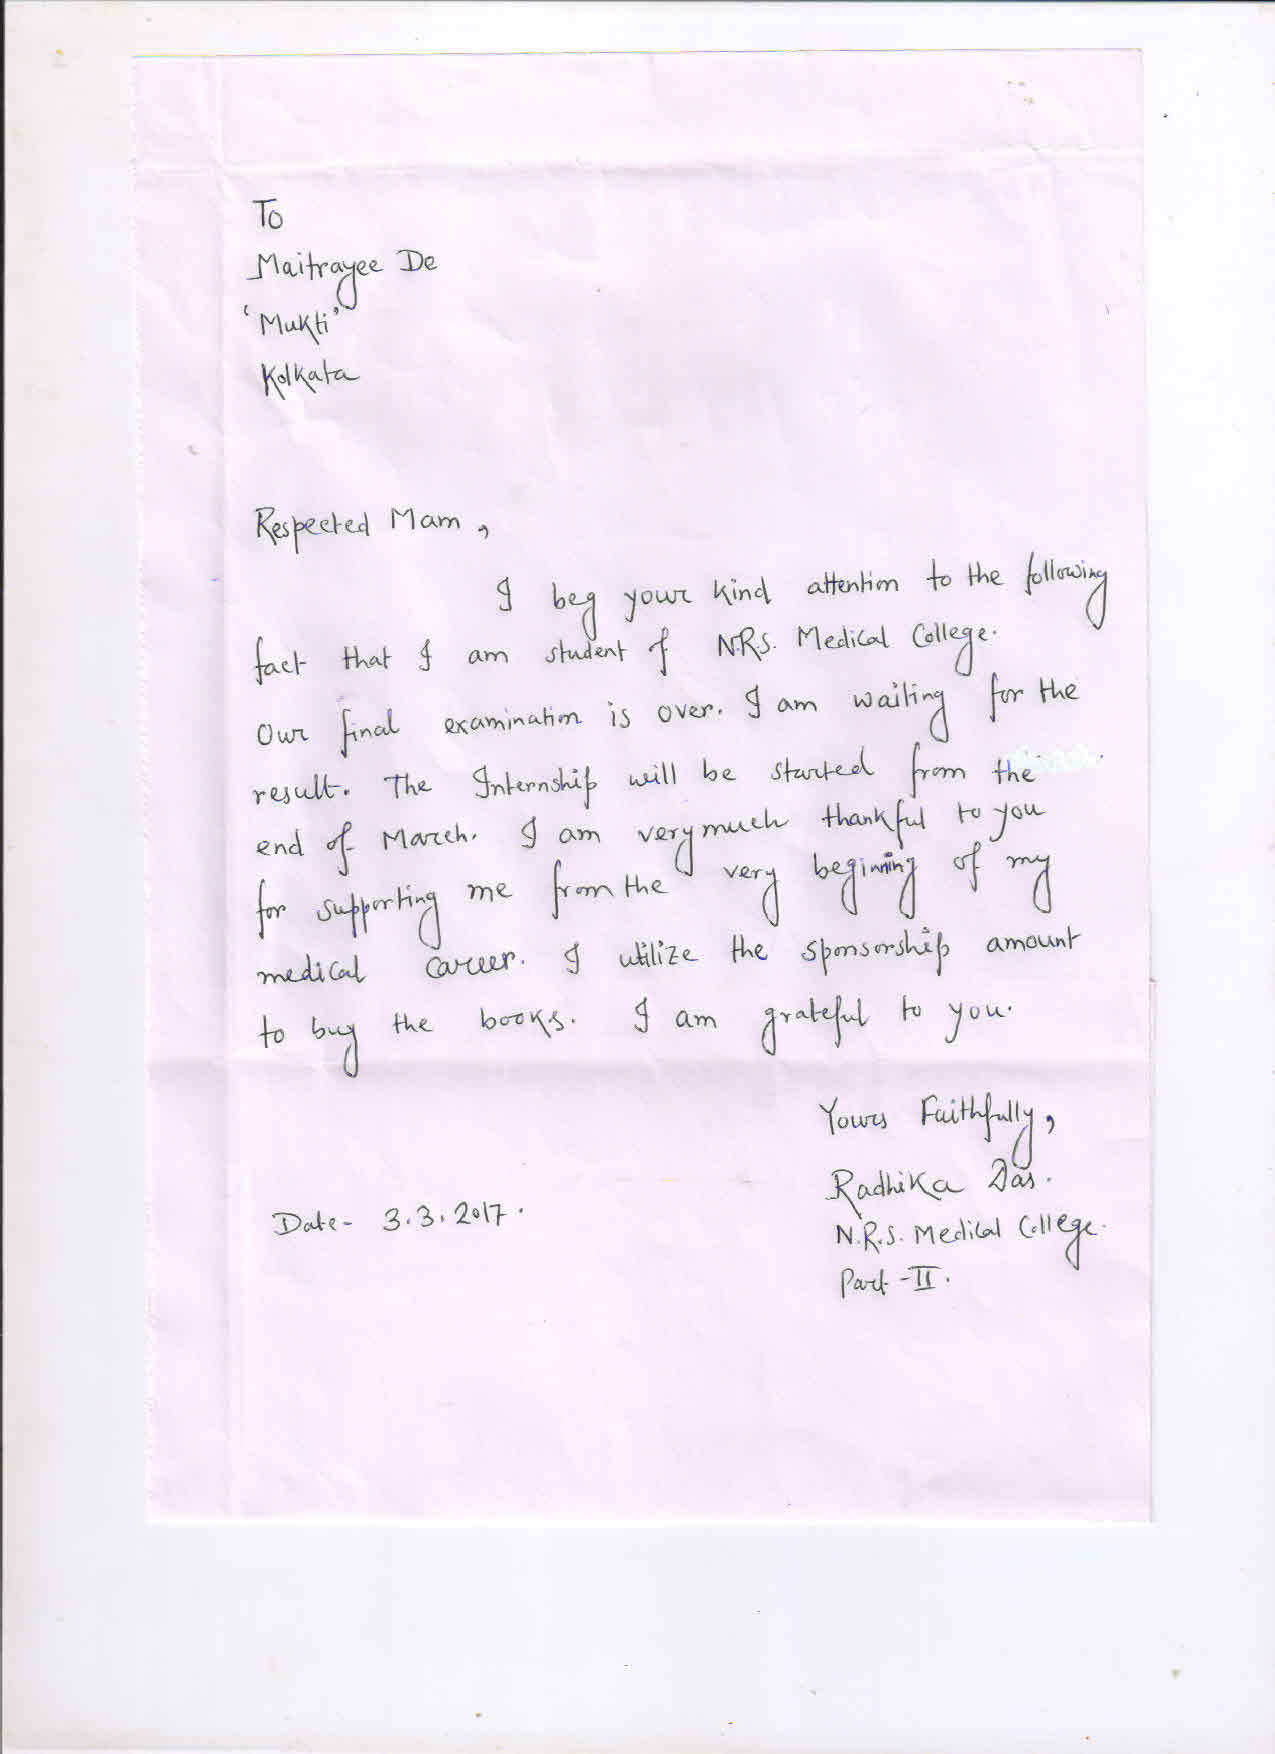 To
Maitrayee De
'Mukti'
Kolkata
Respected Mam,
I beg your kind attention to the following
fact that I am student of N.R.S. Medical College.
Our final examination is over. I am waiting for the
result. The Internship will be started from the
end of March. I am verymuch thankful to you
for supporting me from the very beginning of my
medical career. I utilize the sponsorship amount
to buy the books. I am grateful to you.
Yours Faithfully,
Radhika Das.
Date- 3.3.2017.
N.R.S. Medical College.
Part-II.